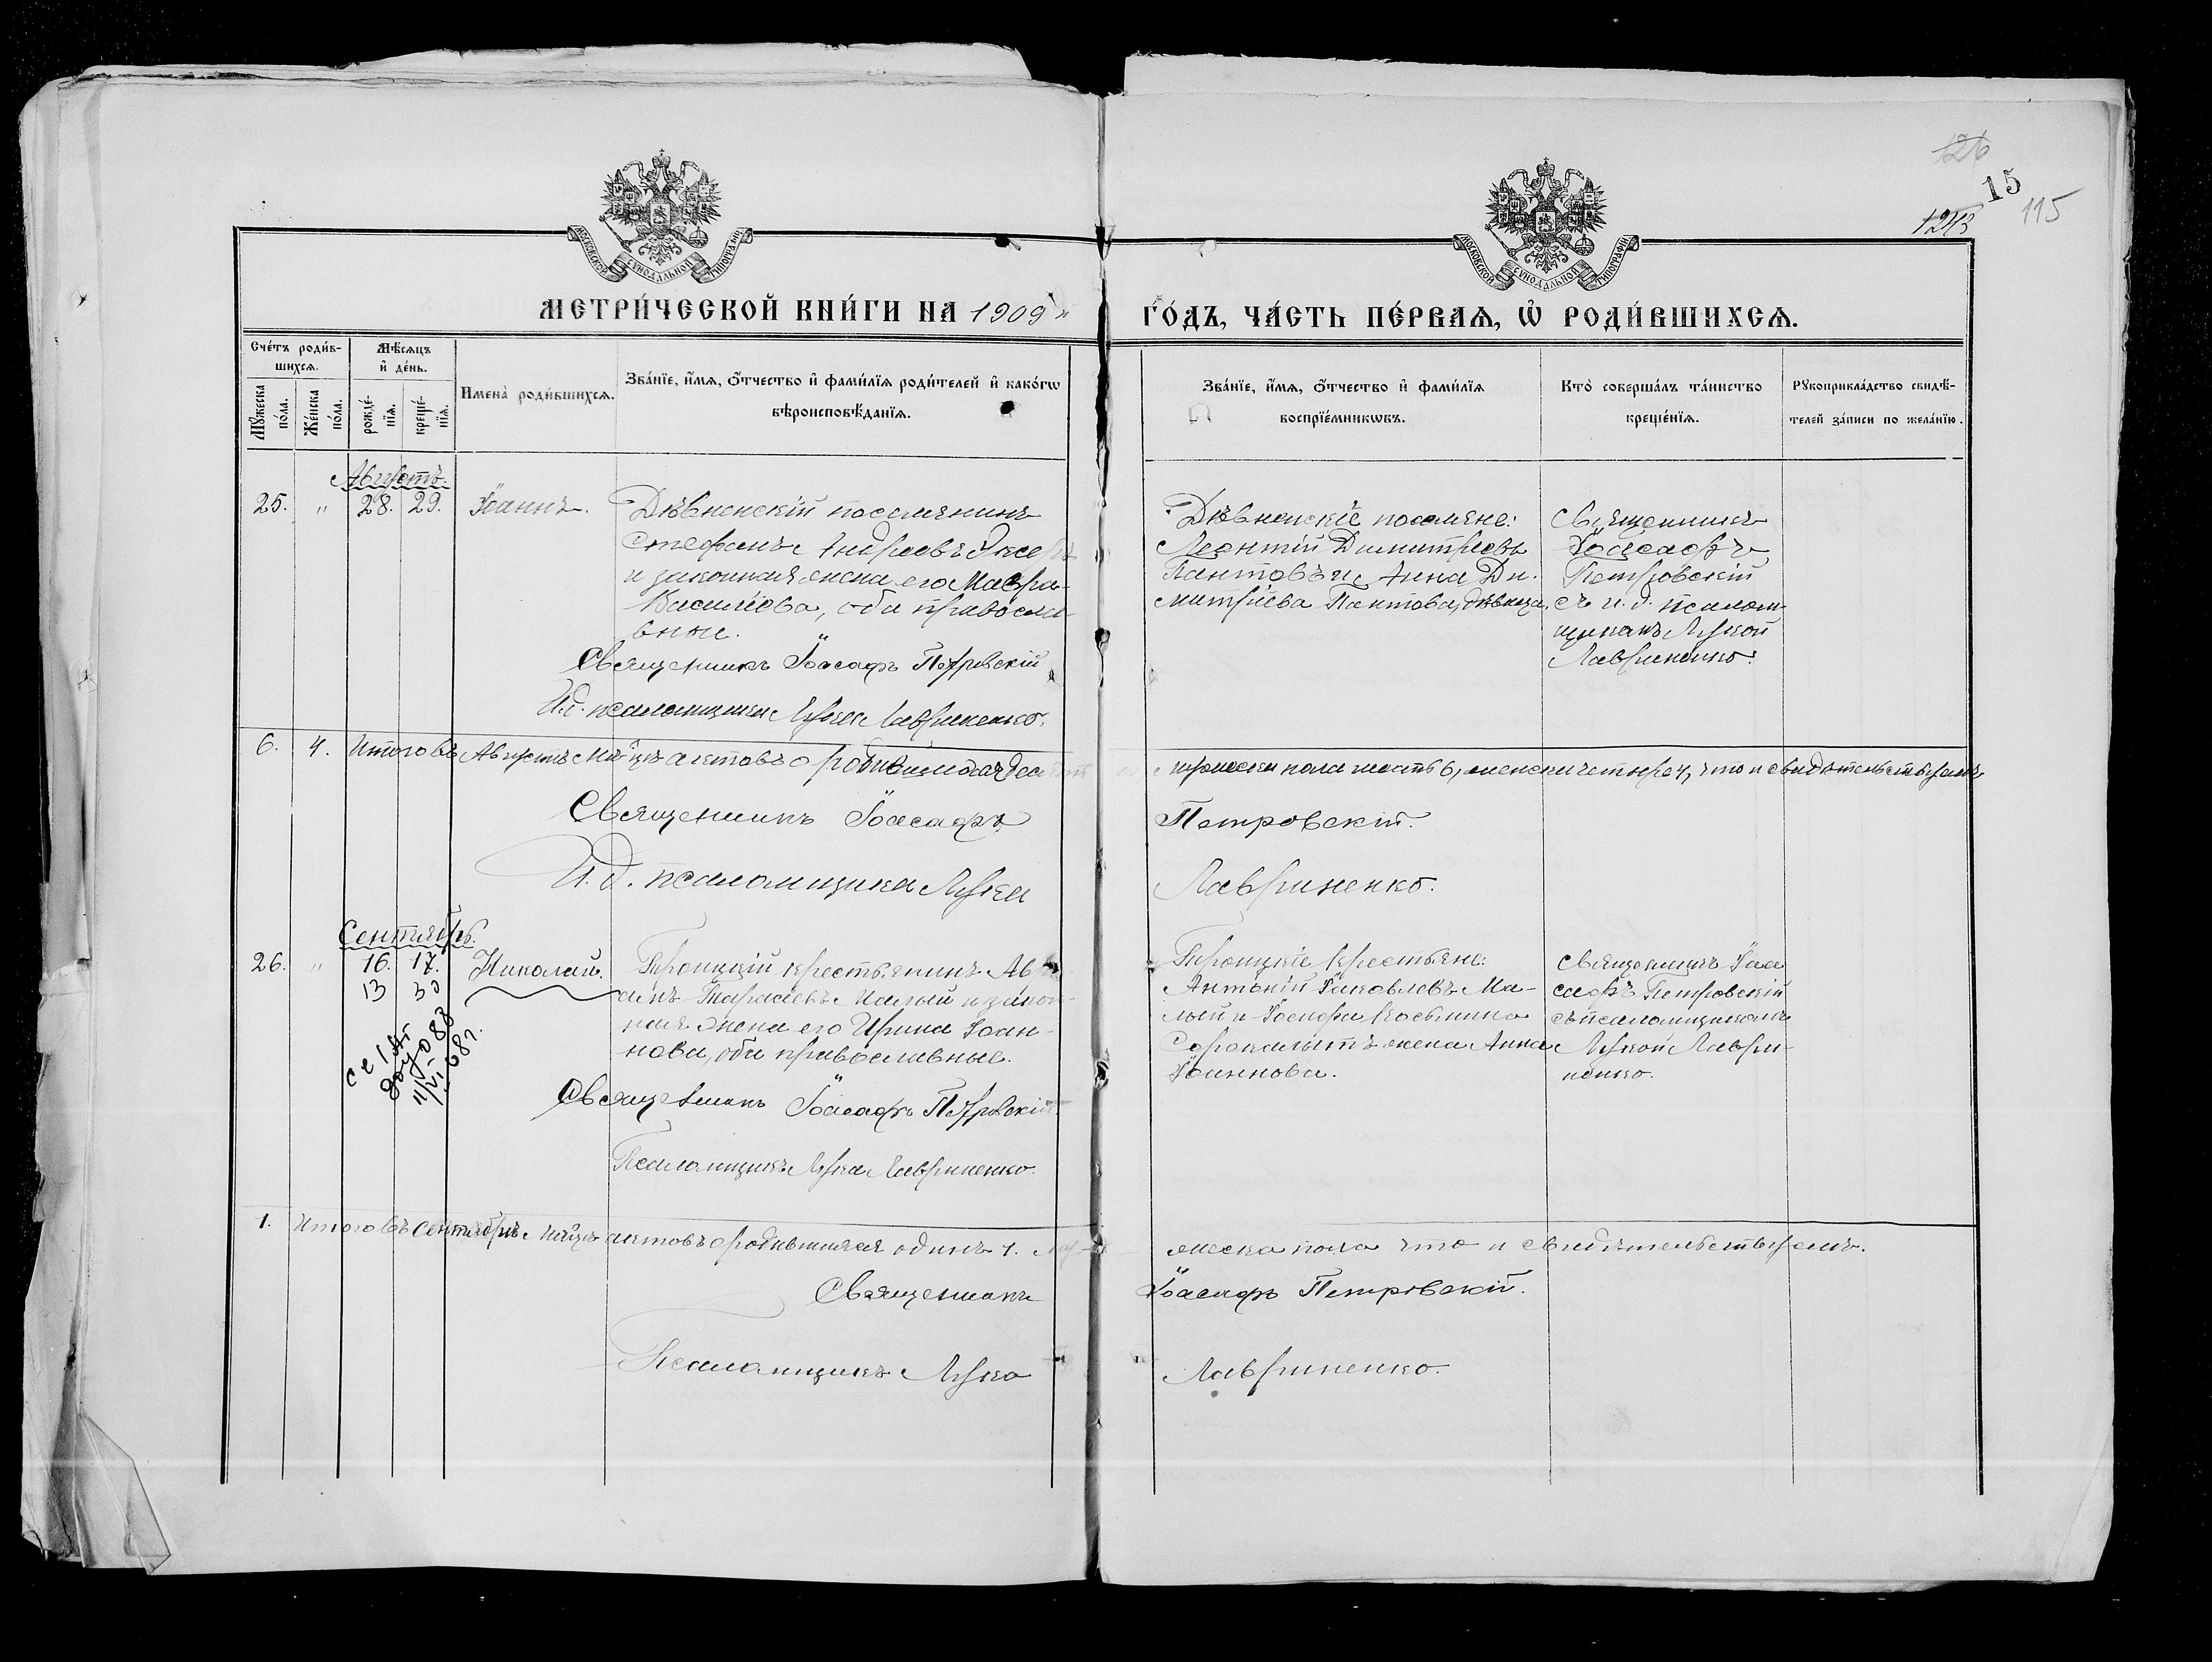 126
15
115
1243
МОСКОВСКОЙ СѴНОДАЛЬНОЙ ТИПОГРАФІИ
МОСКОВСКОЙ СѴНОДАЛЬНОЙ ТИПОГРАФІИ
МЕТРИ́ЧЕСКОЙ КНИ́ГИ НА 1909
ГО́ДЪ, ЧА́СТЬ ПЕ́РВАѦ, Ѡ҆ РОДИ́ВШИХСѦ.
Сче́тъ роди́в-
шихсѧ.
Мѣ́сѧцъ
и҆ де́нь.
Мꙋ́жеска по́ла.
Же́нска по́ла.
рожде́-
нїѧ.
креще́-
нїѧ.
Имена̀ роди́вшихсѧ.
Зва́нїе, и҆́мѧ, ѻ҆́тчество и҆ фами́лїѧ роди́телей и҆ како́гѡ
вѣроисповѣ́данїѧ.
Зва́нїе, и҆́мѧ, ѻ҆́тчество и҆ фами́лїѧ
воспрїе́мникѡвъ.
Кто̀ соверша́лъ та́инство
креще́нїѧ.
Рꙋкоприкла́дство свидѣ́-
телей за́писи по жела́нїю.
Августъ.
25. " 28. 29. Іоаннъ.
Дѣвненскій поселянинъ
Стефанъ Андреевъ
и законная жена его Мавра
Василіева, оба православ-
вные.
Священникъ Іоасафъ Петровскій
И.д. псаломщика Лука Лавриненко.
Дѣвненскіе поселяне:
Леонтій Димитріевъ
Пантовъ и Анна Ди-
митріева Пантова, дѣвица.
Священникъ
Іоасафъ
Петровскій
съ и.д. псалом-
щикомъ Лукой
Лавриненко.
6. 4. Итого въ Августѣ м-цѣ актовъ о родившихся десять
мужеска пола шесть 6, женска четыре 4, что и свидѣтельствуемъ
Священникъ Іоасафъ
Петровскій.
И.д. псаломщика Лука
Лавриненко.
Сентябрь.
26. " 16. 17. Николай.
13 30
Троицкій крестьянинъ Авра-
амъ Тарасіевъ Малый и закон-
ная жена его Ирина Іоан-
нова, оба православные.
Священникъ Іоасафъ Петровскій
Псаломщикъ Лука Лавриненко.
Троицкіе крестьяне:
Антоній Іаковлевъ Ма-
лый и Іосифа Косьмина
жена Анна
Іоаннова.
Священникъ Іоа-
сафъ Петровскій
съ псаломщикомъ
Лукой Лаври-
ненко.
1. Итого въ Сентябрѣ м-цѣ актовъ о родившихся одинъ 1. му-
жеска пола что и свидѣтельствуемъ.
Священникъ
Іоасафъ Петровскій.
Псаломщикъ Лука
Лавриненко.